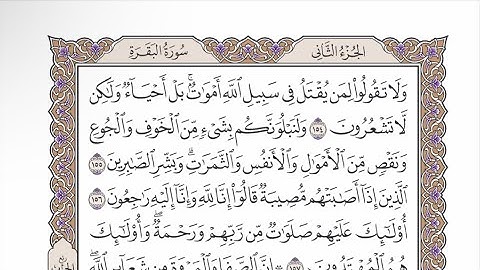 الجزء الثاني
سورة البقرة
وَلَا تَقُولُوا۟ لِمَن يُقْتَلُ فِى سَبِيلِ ٱللَّهِ أَمْوَٰتٌۢ ۚ بَلْ أَحْيَآءٌ وَلَٰكِن
لَّا تَشْعُرُونَ ١٥٤ وَلَنَبْلُوَنَّكُم بِشَىْءٍ مِّنَ ٱلْخَوْفِ وَٱلْجُوعِ
وَنَقْصٍ مِّنَ ٱلْأَمْوَٰلِ وَٱلْأَنفُسِ وَٱلثَّمَرَٰتِ ۗ وَبَشِّرِ ٱلصَّٰبِرِينَ ١٥٥
ٱلَّذِينَ إِذَآ أَصَٰبَتْهُم مُّصِيبَةٌ قَالُوٓا۟ إِنَّا لِلَّهِ وَإِنَّآ إِلَيْهِ رَٰجِعُونَ ١٥٦
أُو۟لَٰٓئِكَ عَلَيْهِمْ صَلَوَٰتٌ مِّن رَّبِّهِمْ وَرَحْمَةٌ ۖ وَأُو۟لَٰٓئِكَ
هُمُ ٱلْمُهْتَدُونَ ١٥٧ إِنَّ ٱلصَّفَا وَٱلْمَرْوَةَ مِن شَعَآئِرِ ٱللَّهِ